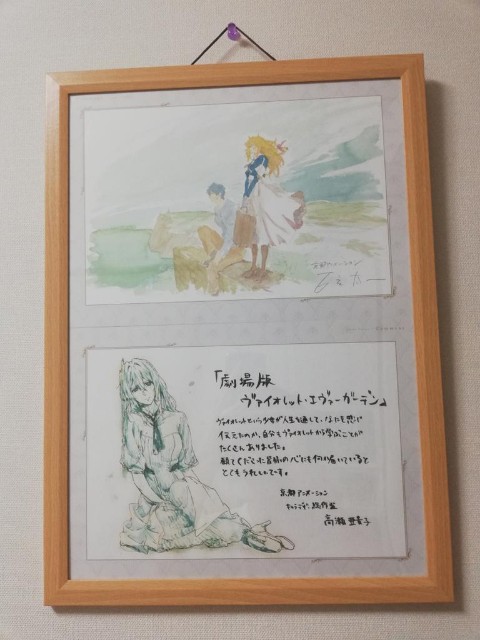 京都アニメーション
「劇場版
ヴァイオレット・エヴァーガーデン』
ヴァイオレットという少女が人生を通して、なにを思い
伝えたのか、自分もヴァイオレットから学ぶことが
たくさんありました。
観てくださった皆様の心にも何か届いていると
とてもうれしいです。
京都アニメーション
キャラクターデザイン 総作監
高瀬亜貴子